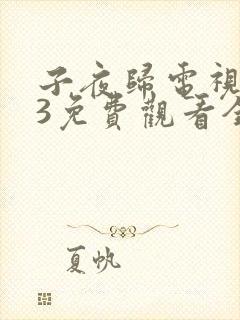 子夜歸電視
3免費觀看全
夏帆